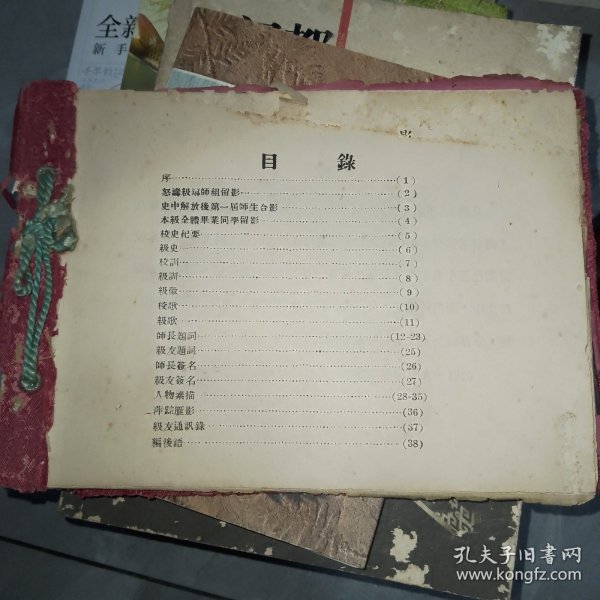 全新
新手
目錄
序……………………(1)
怒濤級導師組留影……………………(2)
史中解放後第一屆師生合影……………………(3)
本級全體畢業同學留影……………………(4)
校史紀要……………………(5)
級史……………………(6)
校訓……………………(7)
級訓……………………(8)
級徽……………………(9)
校歌……………………(10)
級歌……………………(11)
師長題詞……………………(12-23)
級友題詞……………………(25)
師長簽名……………………(26)
級友簽名……………………(27)
人物素描……………………(28-35)
萍踪雁影……………………(36)
級友通訊錄……………………(37)
編後語……………………(38)
孔夫子旧書网
www.kongfz.com